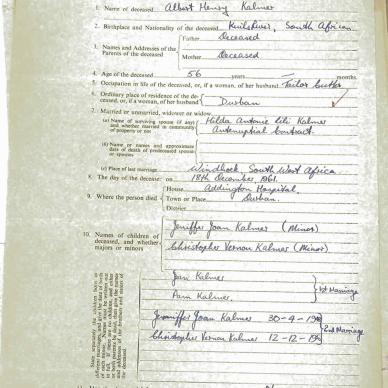 1. Name of deceased Albert Henry Kalmer
2. Birthplace and Nationality of the deceased South African
3. Names and Addresses of the Parents of the deceased
Father Deceased
Mother Deceased
4. Age of the deceased 56 years months
5. Occupation in life of the deceased, or, if a woman, of her husband Tailor Cutter
6. Ordinary place of residence of the deceased, or, if a woman, of her husband Durban
7. Married or unmarried, widower or widow
(a) Name of surviving spouse (if any) and whether married in community of property or not Hilda Antonie Lili Kalmer
Antenuptial Contract.
(b) Name or names and approximate date of death of predeceased spouse or spouses
(c) Place of last marriage Windhoek, South West Africa
8. The day of the decease: on 18th December, 1961.
9. Where the person died
House Addington Hospital,
Town or Place Durban.
District
10. Names of children of deceased, and whether majors or minors
Jeniffer Joan Kalmer (Minor)
Christopher Vernon Kalmer (Minor)
Joan Kalmer
Pam Kalmer
1st Marriage
Jeniffer Joan Kalmer 30-4-19
Christopher Vernon Kalmer 12-12-19
2nd Marriage